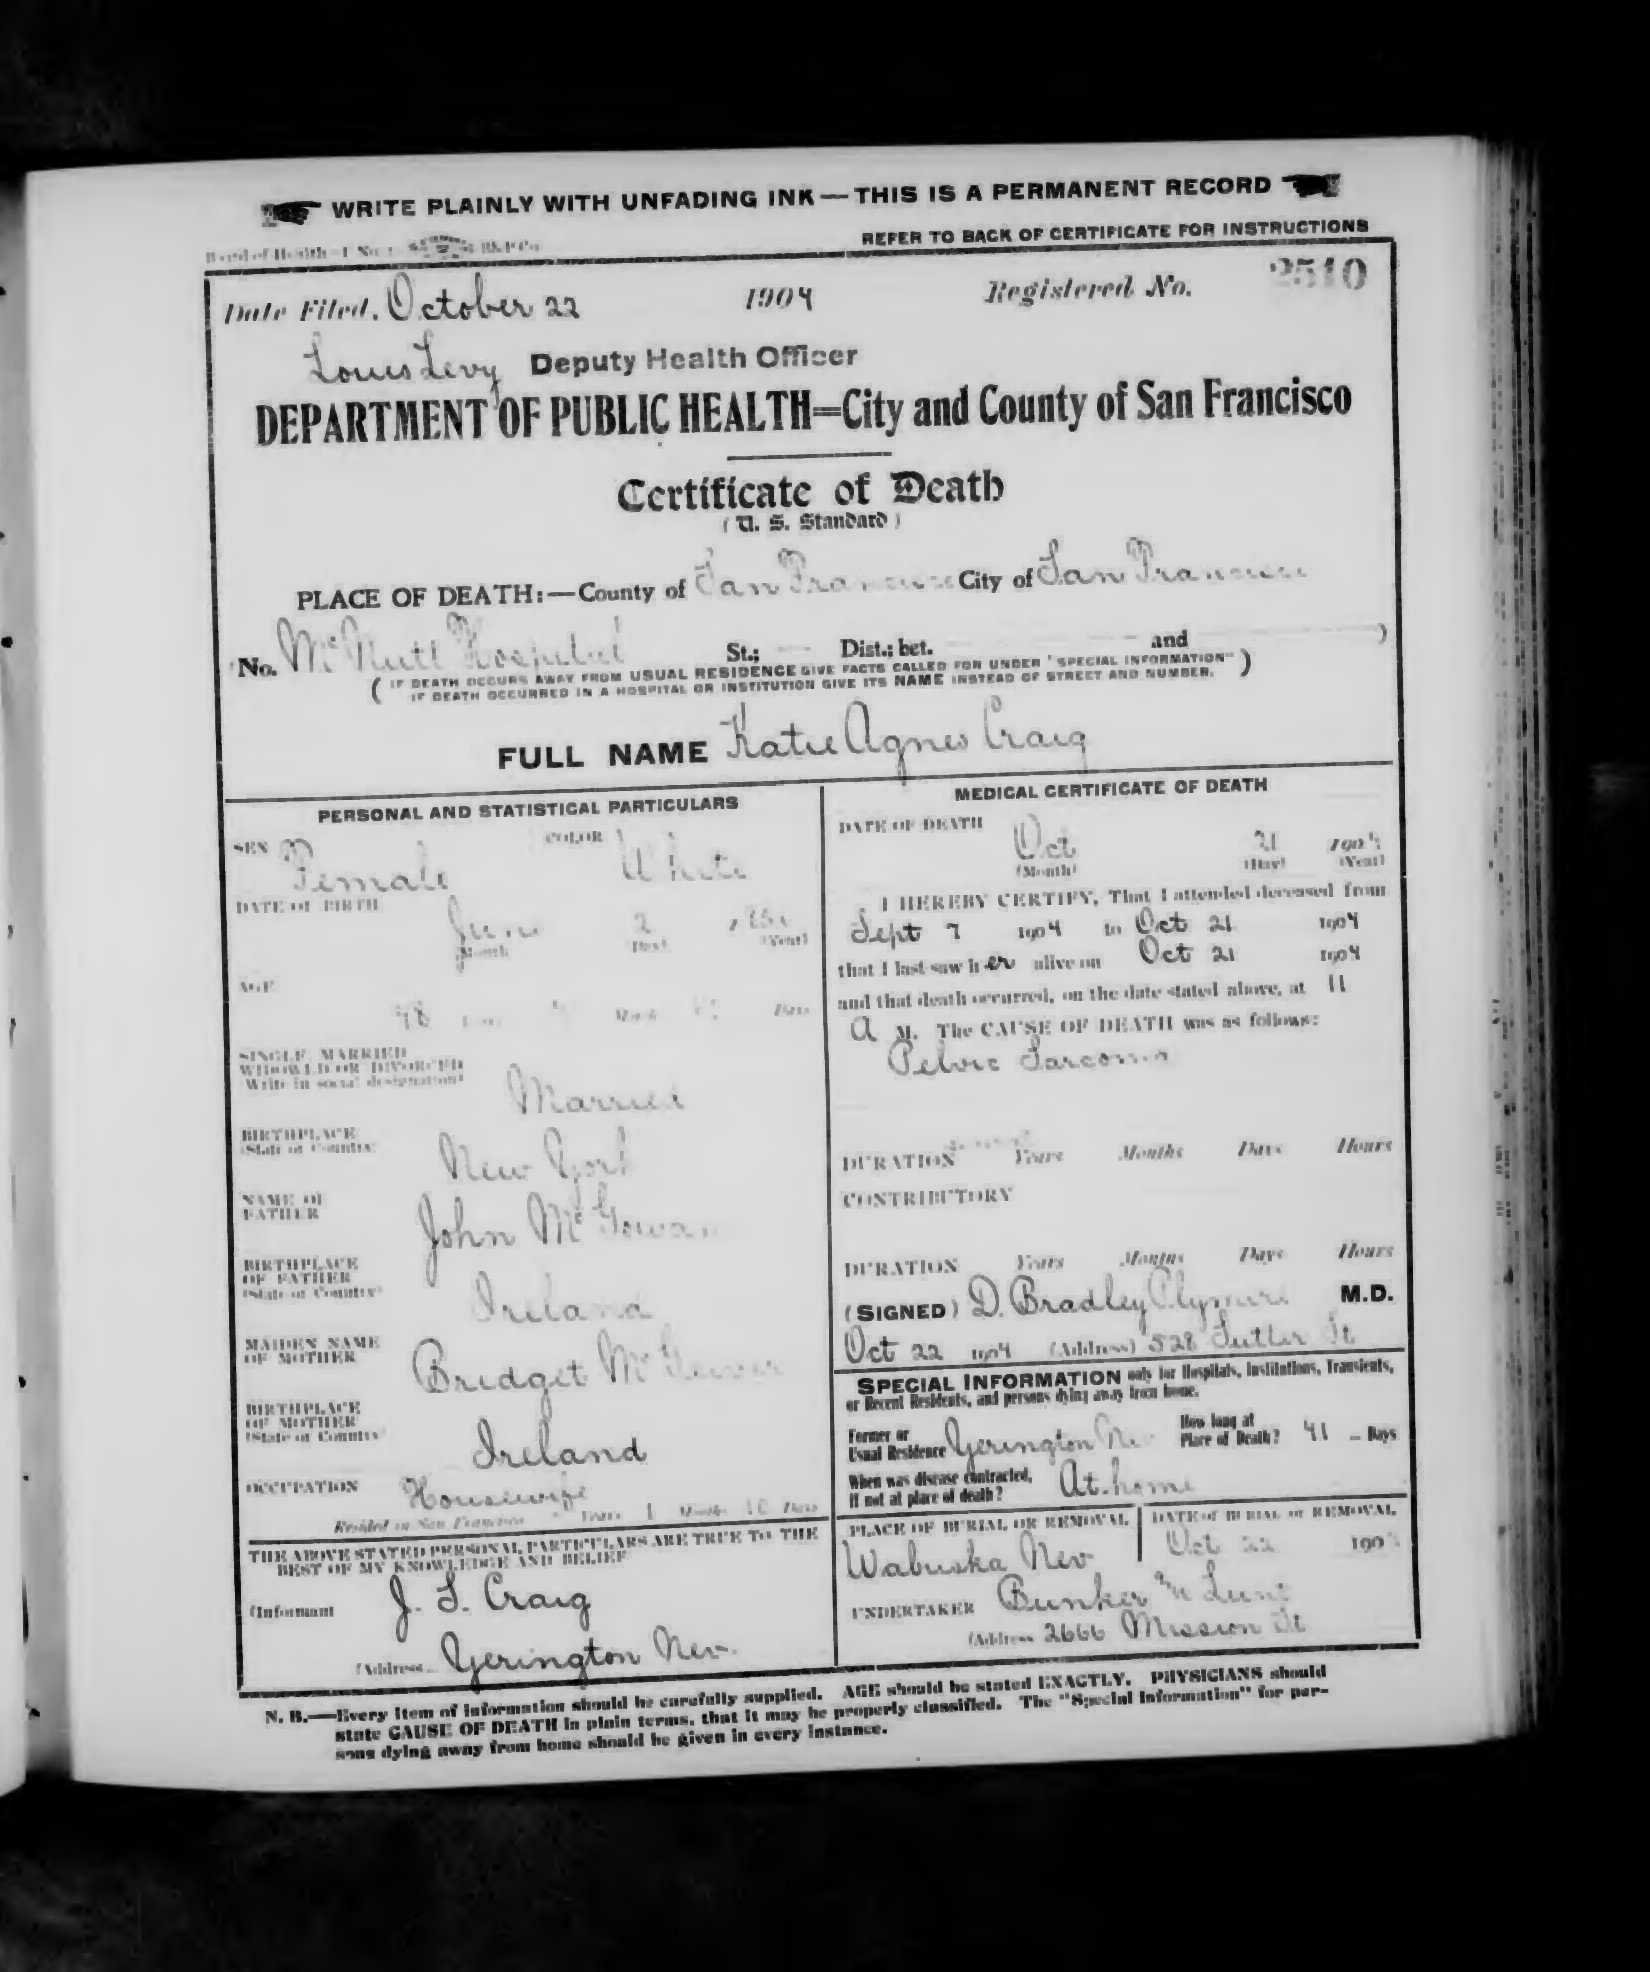 WRITE PLAINLY WITH UNFADING INK — THIS IS A PERMANENT RECORD
Board of Health
REFER TO BACK OF CERTIFICATE FOR INSTRUCTIONS
Date Filed, October 22 1904 Registered No. 2510
Louis Levy Deputy Health Officer
DEPARTMENT OF PUBLIC HEALTH=City and County of San Francisco
Certificate of Death
( U. S. Standard )
PLACE OF DEATH:—County of San Francisco City of San Francisco
No. McNutt Hospital St.; Dist.; bet. and )
( IF DEATH OCCURS AWAY FROM USUAL RESIDENCE GIVE FACTS CALLED FOR UNDER "SPECIAL INFORMATION" )
IF DEATH OCCURRED IN A HOSPITAL OR INSTITUTION GIVE ITS NAME INSTEAD OF STREET AND NUMBER.
FULL NAME Katie Agnes Craig
PERSONAL AND STATISTICAL PARTICULARS
SEX Female COLOR White
DATE OF BIRTH June 2
(Month) (Day) (Year)
AGE
48 Years Months Days
SINGLE, MARRIED
WIDOWED OR DIVORCED
(Write in social designation)
Married
BIRTHPLACE
(State or Country)
New York
NAME OF
FATHER
John McGowan
BIRTHPLACE
OF FATHER
(State or Country)
Ireland
MAIDEN NAME
OF MOTHER
Bridget
BIRTHPLACE
OF MOTHER
(State or Country)
Ireland
OCCUPATION Housewife
Resided in San Francisco Years 1 Months 10 Days
THE ABOVE STATED PERSONAL PARTICULARS ARE TRUE TO THE
BEST OF MY KNOWLEDGE AND BELIEF
(Informant J. S. Craig
(Address Yerington Nev.
MEDICAL CERTIFICATE OF DEATH
DATE OF DEATH
Oct 21 1904
(Month) (Day) (Year)
I HEREBY CERTIFY, That I attended deceased from
Sept 7 1904 to Oct 21 1904
that I last saw her alive on Oct 21 1904
and that death occurred, on the date stated above, at 11
A M. The CAUSE OF DEATH was as follows:
Pelvic Sarcoma
DURATION Years Months Days Hours
CONTRIBUTORY
DURATION Years Months Days Hours
(SIGNED) D. Bradley Plymire M.D.
Oct 22 1904 (Address) 528 Sutter St
SPECIAL INFORMATION only for Hospitals, Institutions, Transients,
or Recent Residents, and persons dying away from home.
Former or
Usual Residence Yerington Nev
How long at
Place of Death? 41 Days
When was disease contracted,
If not at place of death? At home
PLACE OF BURIAL OR REMOVAL
Wabuska Nev
DATE of BURIAL or REMOVAL
Oct 22 190
UNDERTAKER Bunker & Lunt
(Address 2666 Mission St
N. B.—Every item of information should be carefully supplied. AGE should be stated EXACTLY. PHYSICIANS should
state CAUSE OF DEATH in plain terms, that it may be properly classified. The "Special Information" for per-
sons dying away from home should be given in every instance.